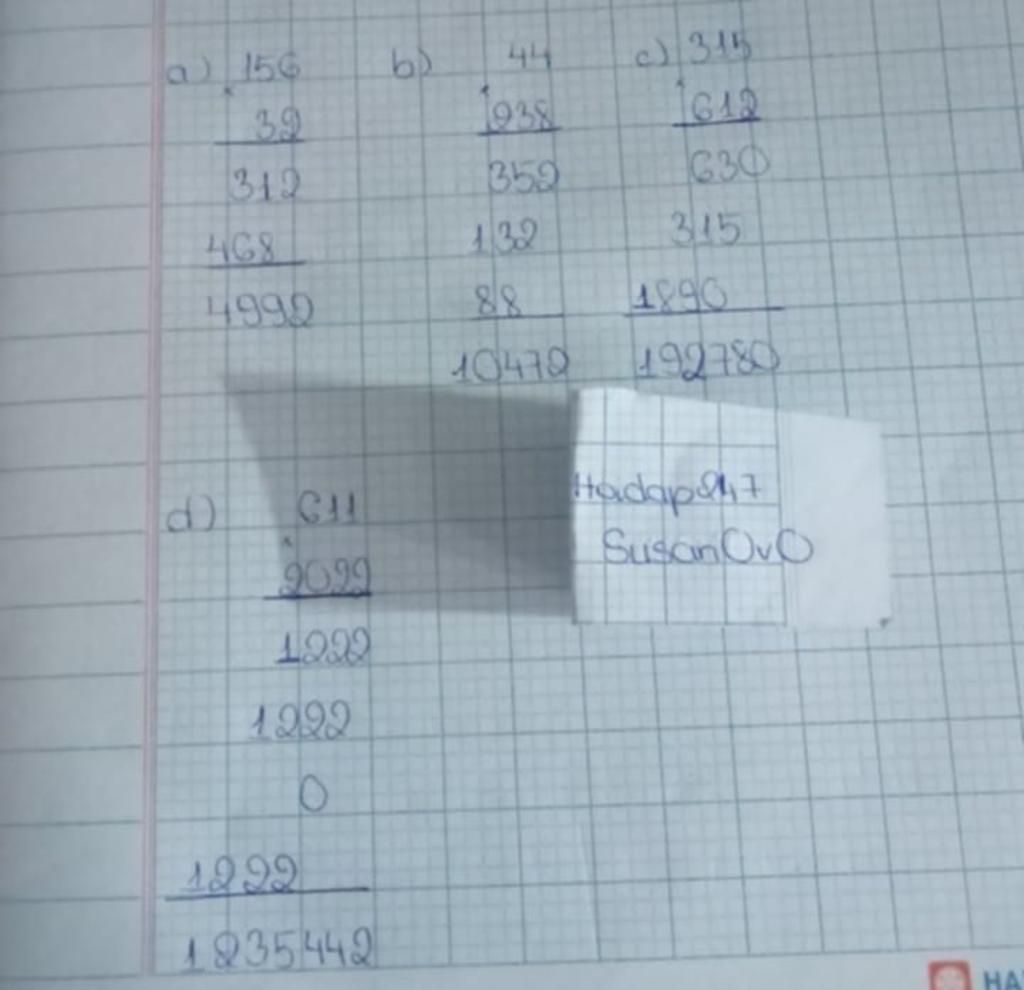 a) 156
32
312
468
4992
b) 44
238
352
132
88
10472
c) 315
612
630
315
1890
192780
d) 611
2022
1222
1222
0
1222
1235442
Hadap247
SusanOvO
HA